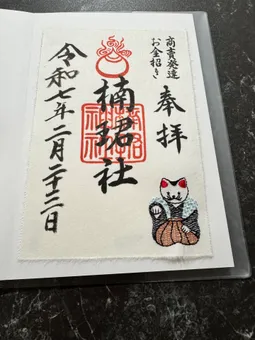 商売発達
お金招き
奉拝
楠珺社
令和七年二月二十二日